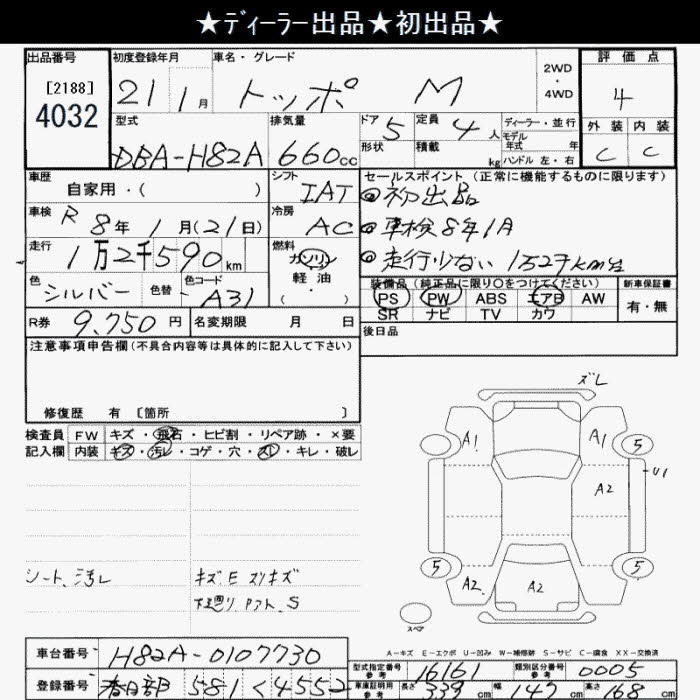 ★ディーラー出品★初出品★
出品番号 [2188] 4032
初度登録年月 21 1月
車名・グレード トッポ M
2WD・4WD
評価点 4
外装 C 内装 C
型式 DBA-H82A
排気量 660cc
ドア 5 形状
定員 4人 積載 kg
ディーラー・並行
モデル年式 年
ハンドル 左・右
車歴 自家用・( )
シフト IAT
車検 R 8年1月(21日)
冷房 AC
走行 1万2千590km
燃料 ガソリン 軽油 ( ・ )
色 シルバー 色替 色コード A31
セールスポイント(正常に機能するものに限ります)
◎初出品
◎車検8年1月
◎走行少ない 1万2千km台
装備品(純正品に限り○をつけてください)
PS PW ABS エアB AW
SR ナビ TV カワ
新車保証書 有・無
R券 9,750円 名変期限 月 日
後日品
注意事項申告欄(不具合内容等は具体的に記入して下さい)
修復歴 有 〔箇所 〕
検査員記入欄
FW キズ・飛石・ヒビ割・リペア跡・×要
内装 キズ・汚レ・コゲ・穴・スレ・キレ・破レ
シート、汚レ
キズ E スリキズ
下廻り P.アト S
ズレ
A1 A1 5
A2 U1
5 A2 A2 5
スペア
A-キズ E-エクボ U-凹み W-補修跡 S-サビ C-腐食 XX-交換済
車台番号 H82A-0107730
登録番号 春日部 581 く4552
型式指定番号 参考 16161
類別区分番号 参考 0005
車庫証明用 参考 長さ 339cm 幅 147cm 高さ 168cm